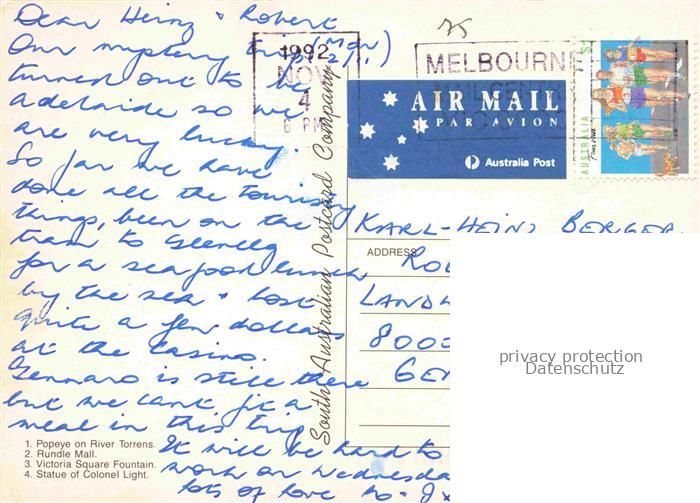 Dear Heinz & Robert
Our mystery trip (Mon
21.)
turned out to be
adelaide so we
are very lucky.
So far we have
done all the touristy
things, been on the
tram to Glenelg
for a seafood lunch
by the sea & lost
quite a few dollars
at the Casino.
Gennaro is still there
but we cant fit a
meal in this trip
It will be hard to
work on Wednesda
lots of love
1. Popeye on River Torrens.
2. Rundle Mall.
3. Victoria Square Fountain.
4. Statue of Colonel Light.
South Australian Postcard Company
1992
NOV
4
6 PM
MELBOURNE
AIR MAIL
PAR AVION
Australia Post
AUSTRALIA
Fun run
KARL-HEINZ BERGER
ADDRESS
RO
LAND
8000
GE
privacy protection
Datenschutz